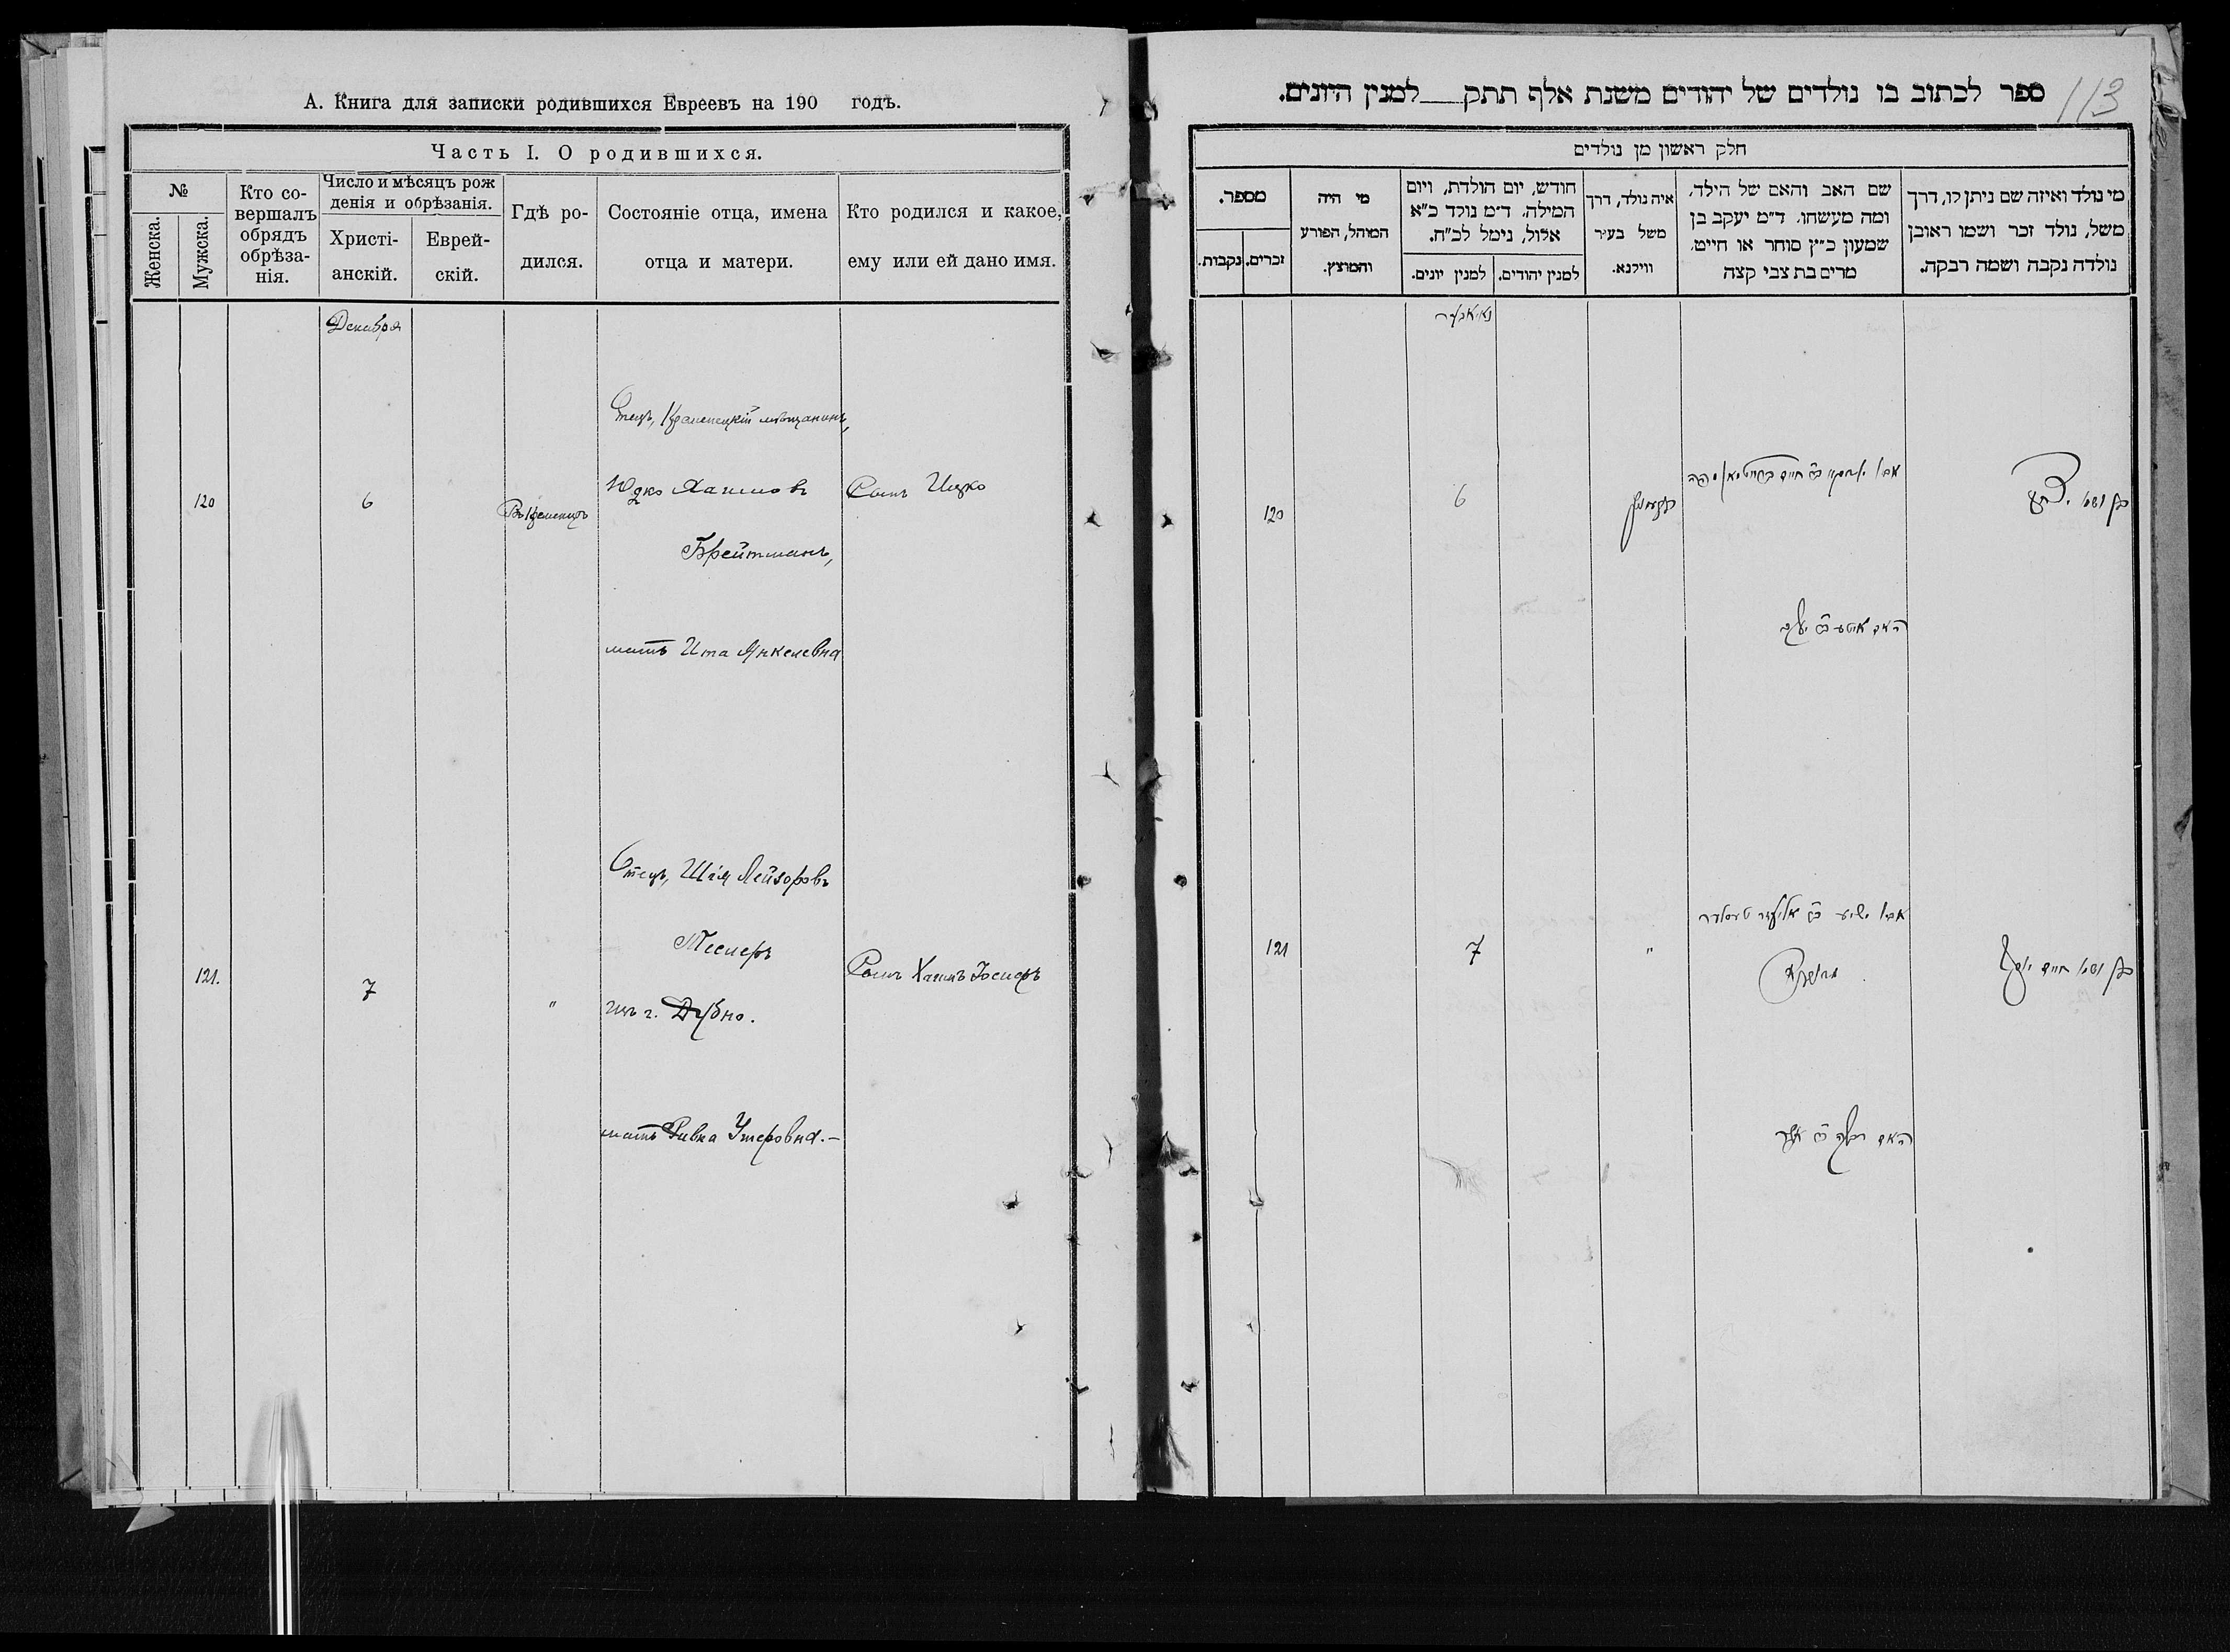 А. Книга для записки родившихся Евреевъ на 190 годъ.
Часть I. О родившихся.
№
Женска.
Мужска.
Кто со-
вершалъ
обрядъ
обрѣза-
нія.
Число и мѣсяцъ рож
денія и обрѣзанія.
Христі-
анскій.
Еврей-
скій.
Гдѣ ро-
дился.
Состояніе отца, имена
отца и матери.
Кто родился и какое,
ему или ей дано имя.
Декабря
Отецъ, Кременецкій мѣщанинъ,
120
6
Въ Кременцѣ
Юдко Хаимовъ
Сынъ Ицко
Брейтманъ,
мать Ита Янкелевна
Отецъ, Шая Лейзоровъ
Теслеръ
121.
7
"
Сынъ Хаимъ Іосифъ
изъ г. Дубно.
мать Ривка Ушеровна.—
113
ספר לכתוב בו נולדים של יהודים משנת אלף תתק למנין היונים.
חלק ראשון מן נולדים
מי נולד ואיזה שם ניתן לו, דרך
משל, נולד זכר ושמו ראובן
נולדה נקבה ושמה רבקה.
שם האב והאם של הילד,
ומה מעשהו. ד״מ יעקב בן
שמעון כ״ץ סוחר או חייט,
מרים בת צבי קצה
איה נולד, דרך
משל בעיר
ווילנא.
חודש, יום הולדת, ויום
המילה. ד״מ נולד כ״א
אלול, נימל לכ״ח.
למנין יהודים.
למנין יונים.
מי היה
המוהל, הפורע
והמוצץ.
מספר.
זכרים.
נקבות.
120
6
בן ושמו
האם איטע בת יעקב
אביו ישעי׳ בן אליעזר טעסלער
121
7
"
מדובנא
בן ושמו חיים יוסף
האם רבקה בת אשר